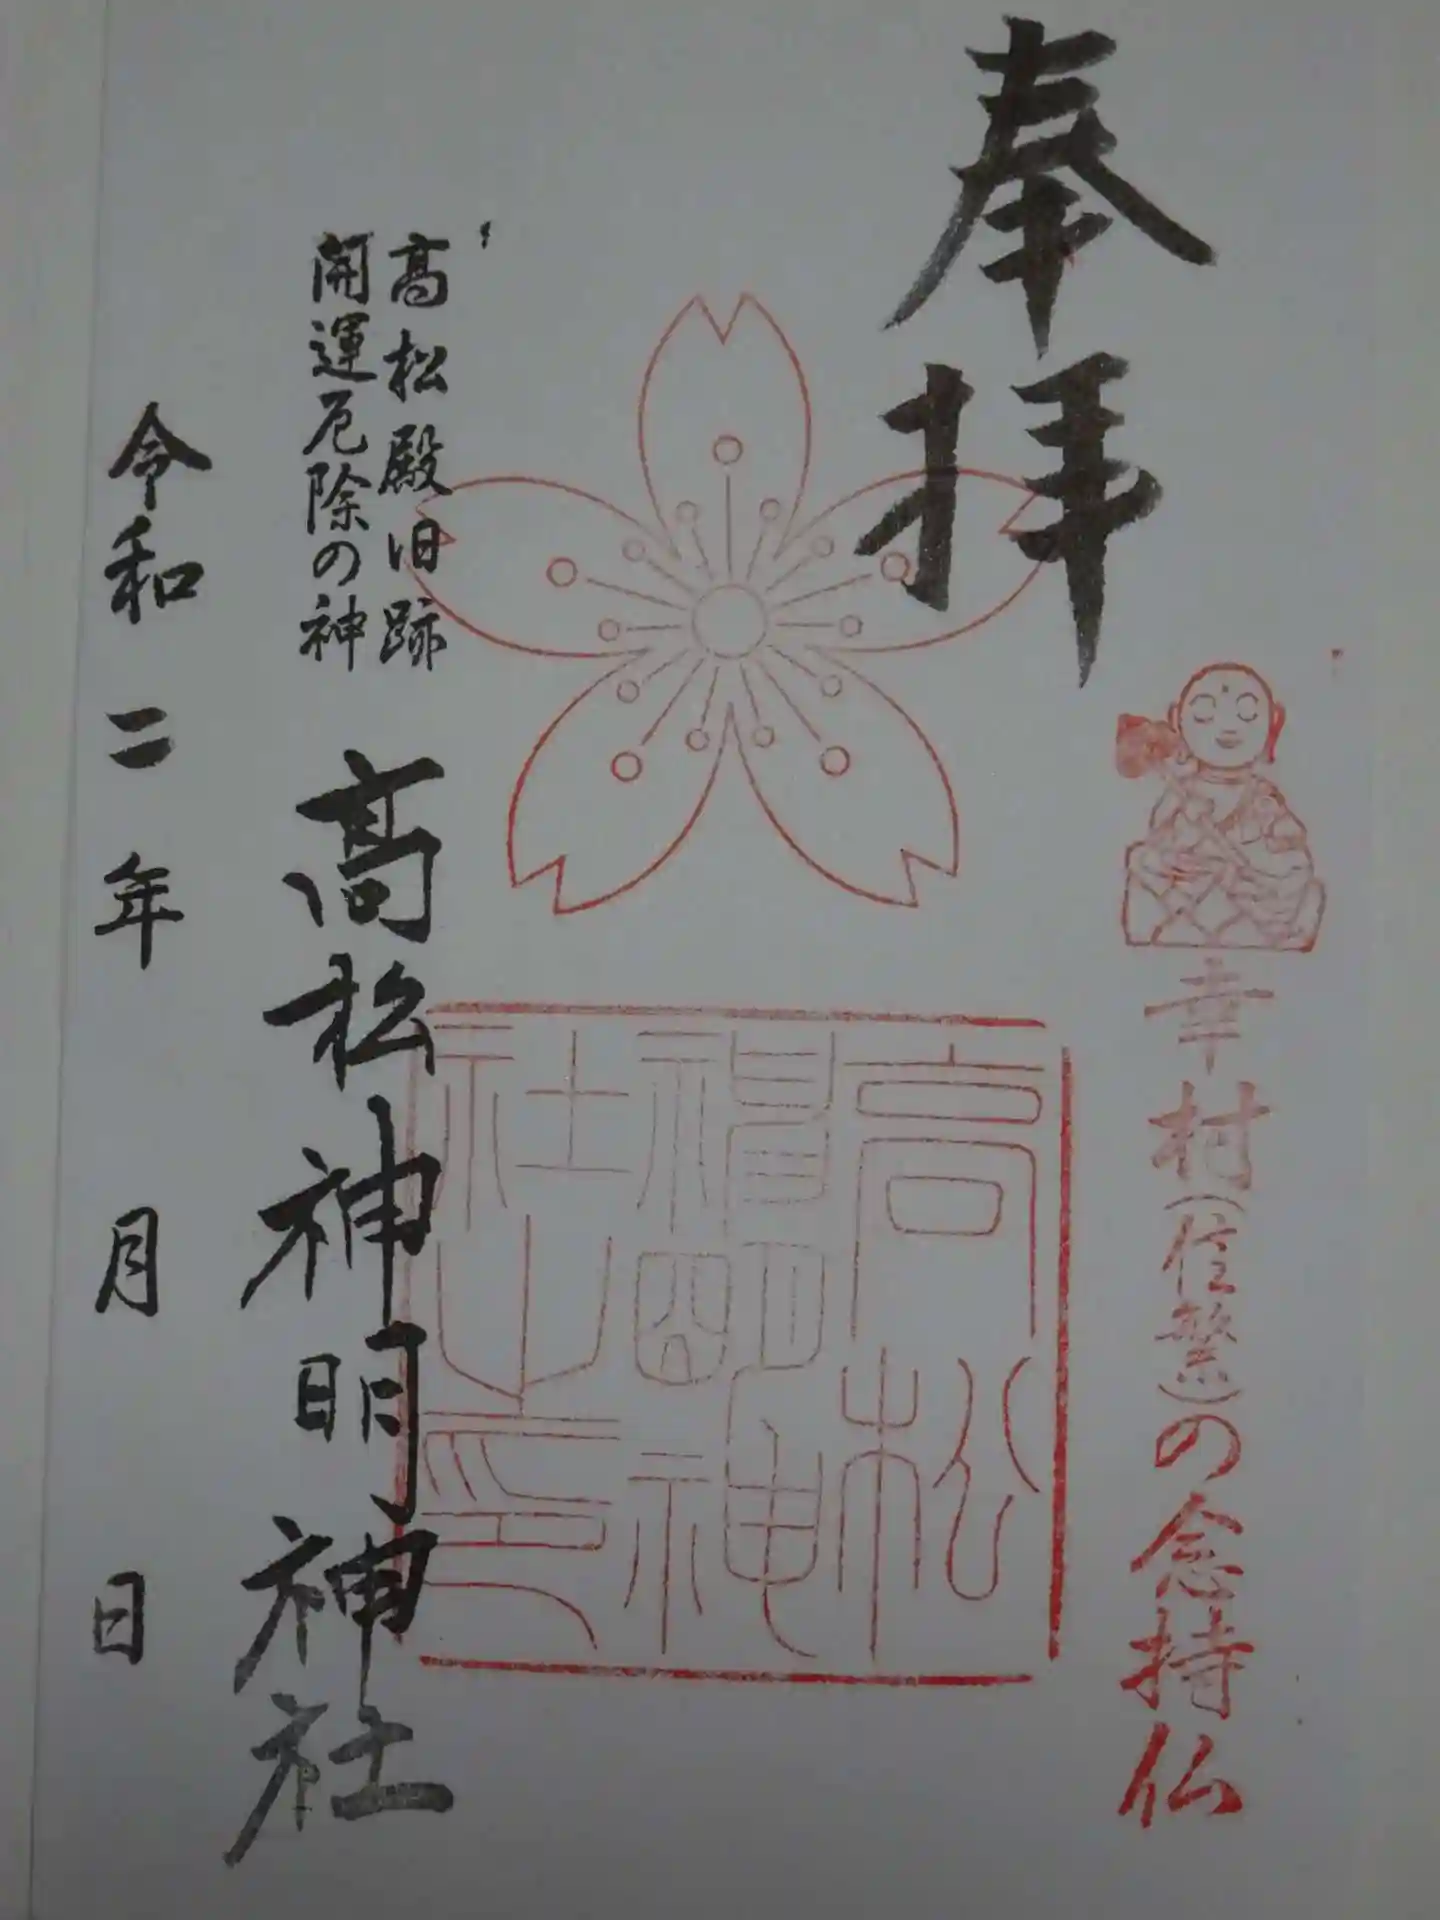 奉拝
幸村(信繁)の念持仏
高松
神明神
社之印
高松殿旧跡
開運厄除の神
高松神明神社
令和二年 月 日